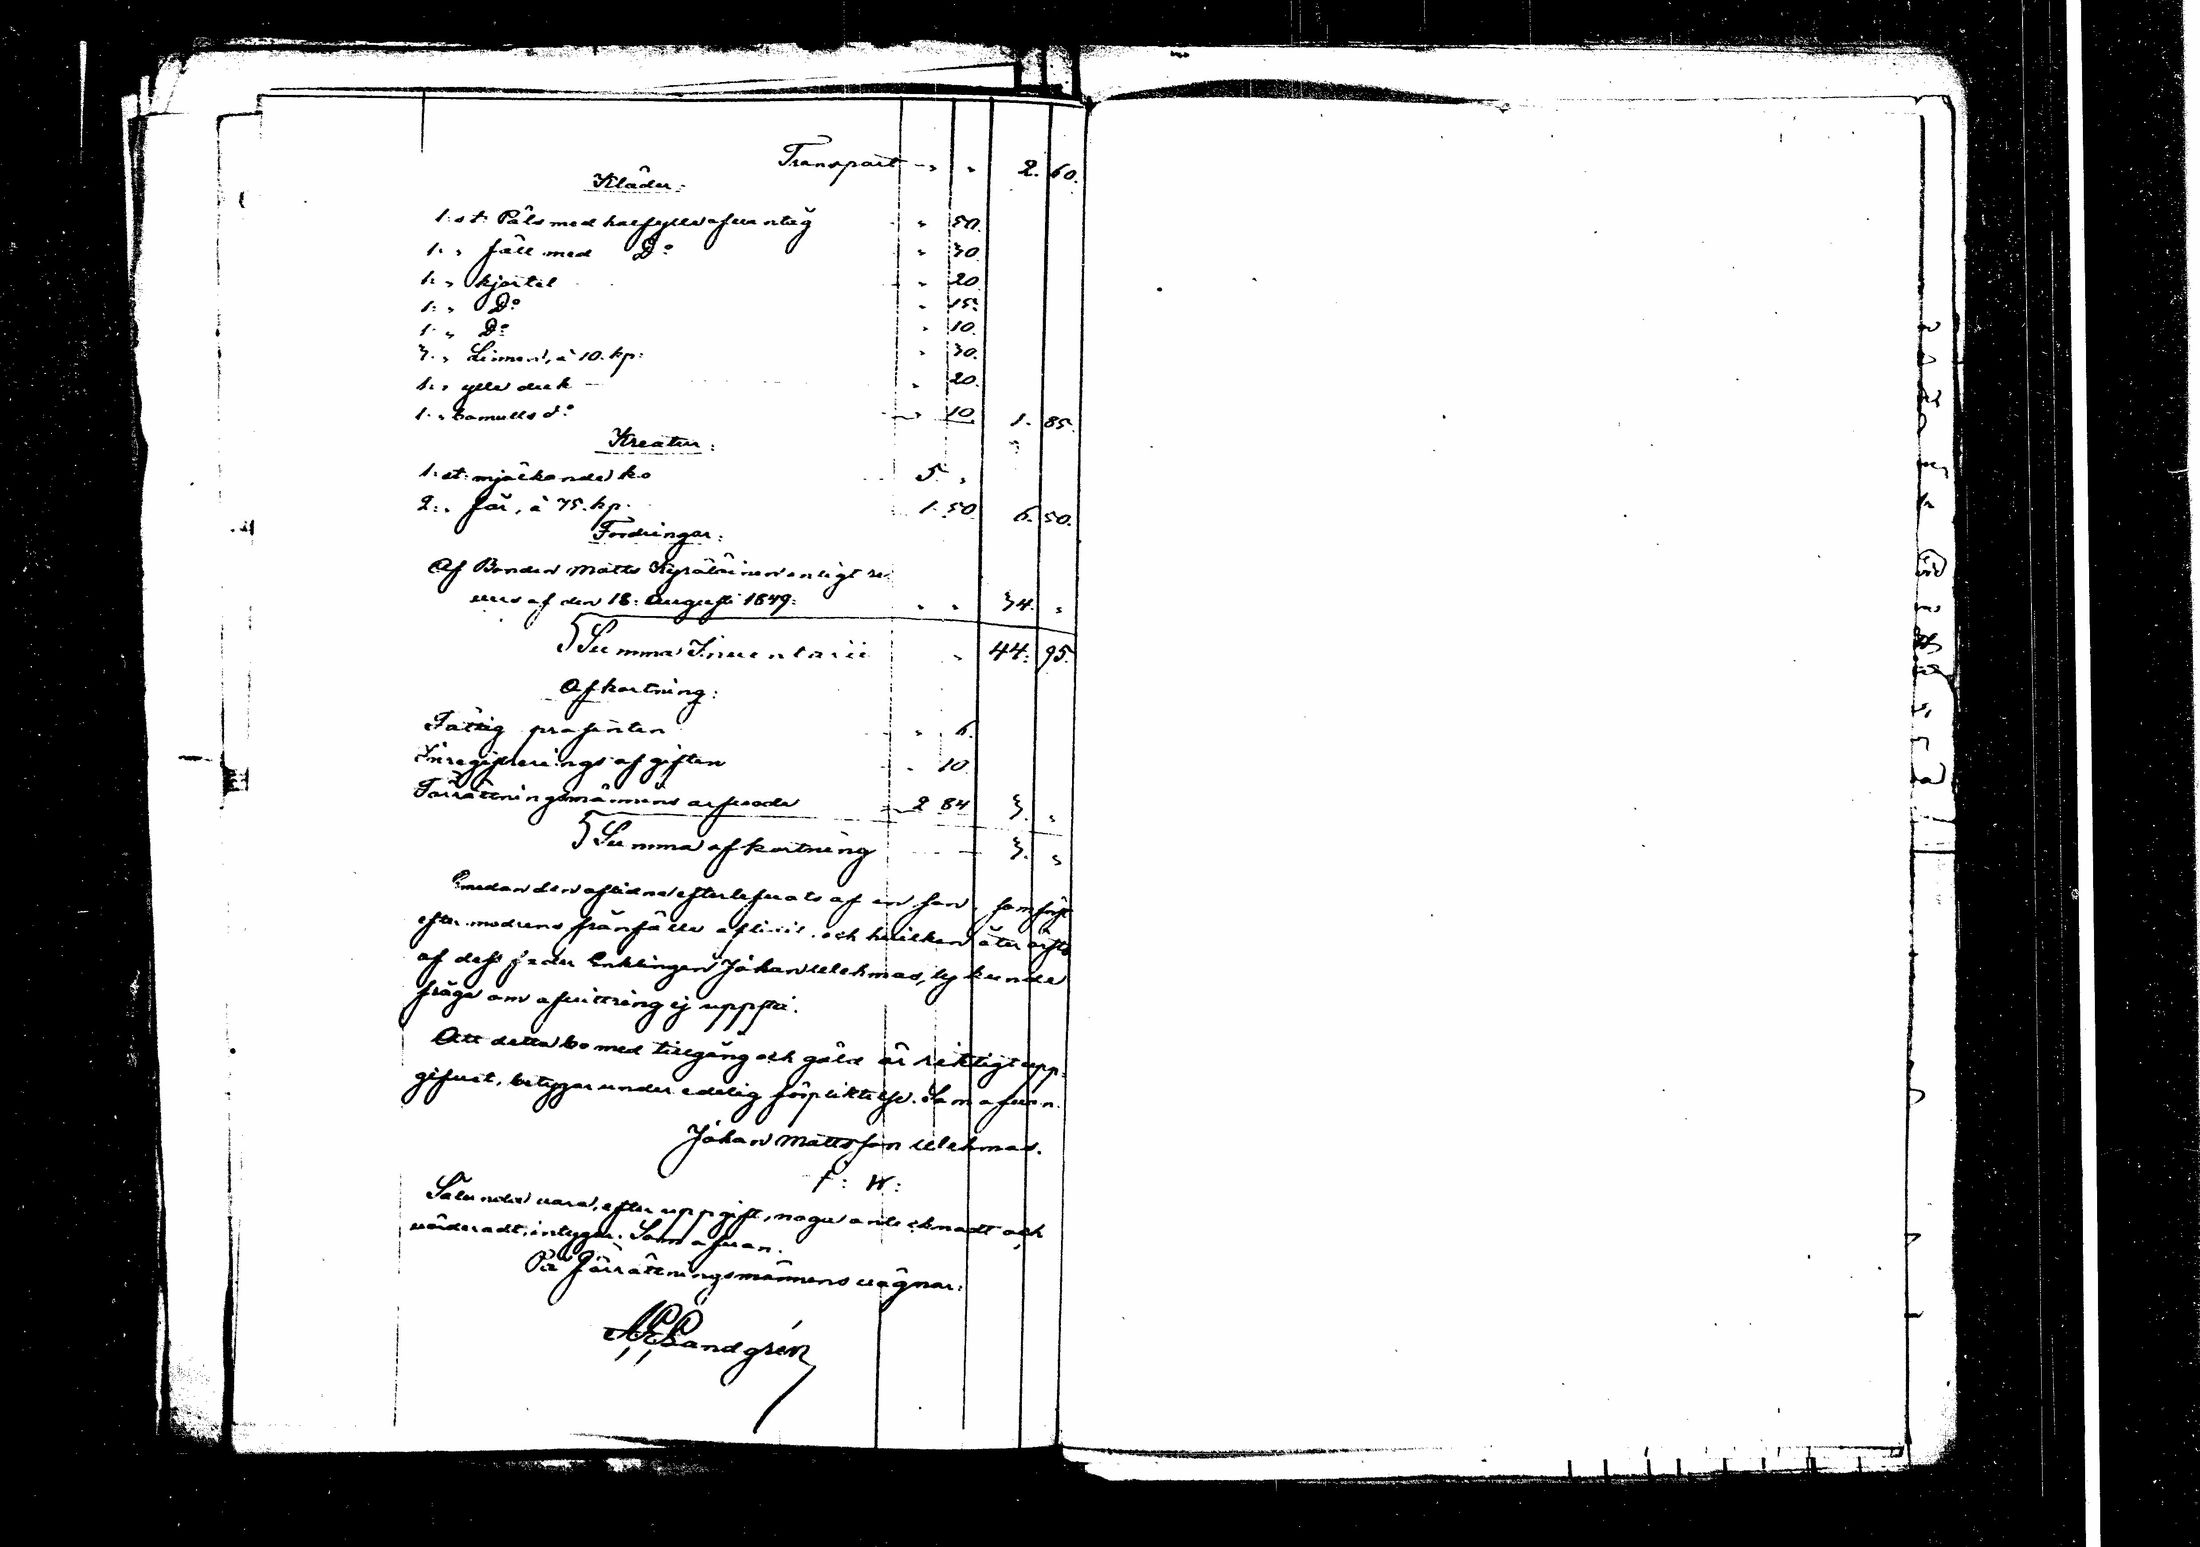 Transport " " 2. 60.
Kläder:
1: st: Päls med halfylle afvantyg " 50.
1: " fäll med Do " 30
1: " kjortel " 20
1: " Do " 15.
1: " Do " 10.
3: " Linnen, à 10. kp: " 30.
1: " ylle duk " 20.
1: " bomulls do " 10 1. 85.
Kreatur:
1: st: mjölkande ko 5. "
2: " Får, à 75. kp. 1. 50 6. 50.
Fordringar:
Af Bonden Matts enligt re-
vers af den 18: Augusti 1849: " " 34. "
Summa Inventarii " 44: 95.
Afkortning:
Fattig prosenten " 6.
Inregistrerings afgiften " 10
Förrättningsmännens arfvode 2 84 3. "
Summa afkortning 3. "
Emedan den aflidne efterlefvats af en son, som först
efter modrens frånfälle aflidit och hvilken åter ärfts
af dess fader Enklingen Johan Ulehmas, ty kunde
fråga om afvittring ej uppstå.
Att detta bo med tillgång och gäld är riktigt upp-
gifvet, betygar under edelig förpliktelse. Som ofvan.
Johan Mattsson Ulehmas.
Sålunda vara, efter uppgift, noga antecknadt och
värderadt, intygar. Som ofvan.
På Förrättningsmännens vägnar:
Sandgrén